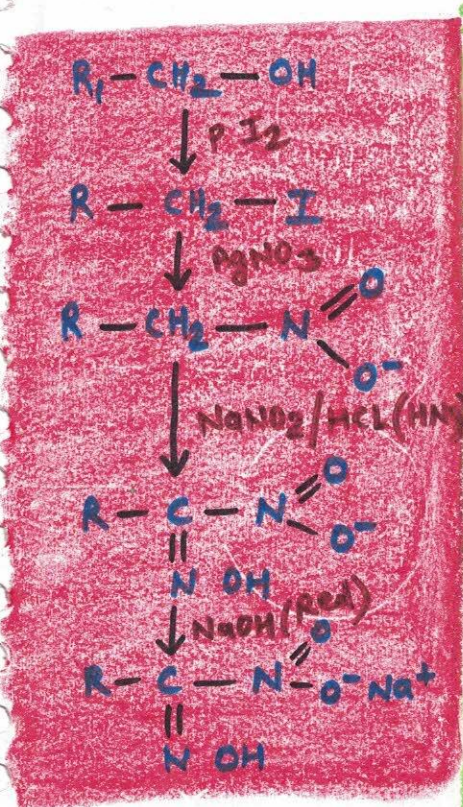 R₁ — CH₂ — OH
P I₂
R — CH₂ — I
AgNO₃
R — CH₂ — N
O
O⁻
NaNO₂/HCL(HN
O
R — C — N
O⁻
N OH
NaOH(Red)
O
R — C — N — O⁻ Na⁺
N OH